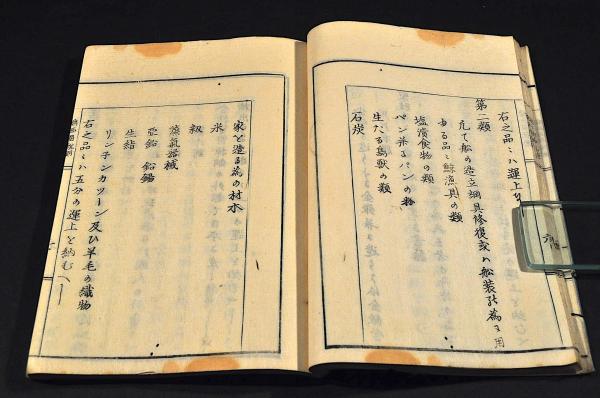 右之品ミハ運上
第二類
凡て船の造立綱具修復或ハ船装の為ニ用
ゆる品ミ鯨漁具の類
塩漬食物の類
パン并ニパンの粉
生たる鳥獣の類
石炭
家を造る為の材木
米
籾
蒸気器械
亜鉛 鉛 錫
生絹
リンネンカツーン及ひ羊毛の織物
右之品ミハ五分の運上を納むへし